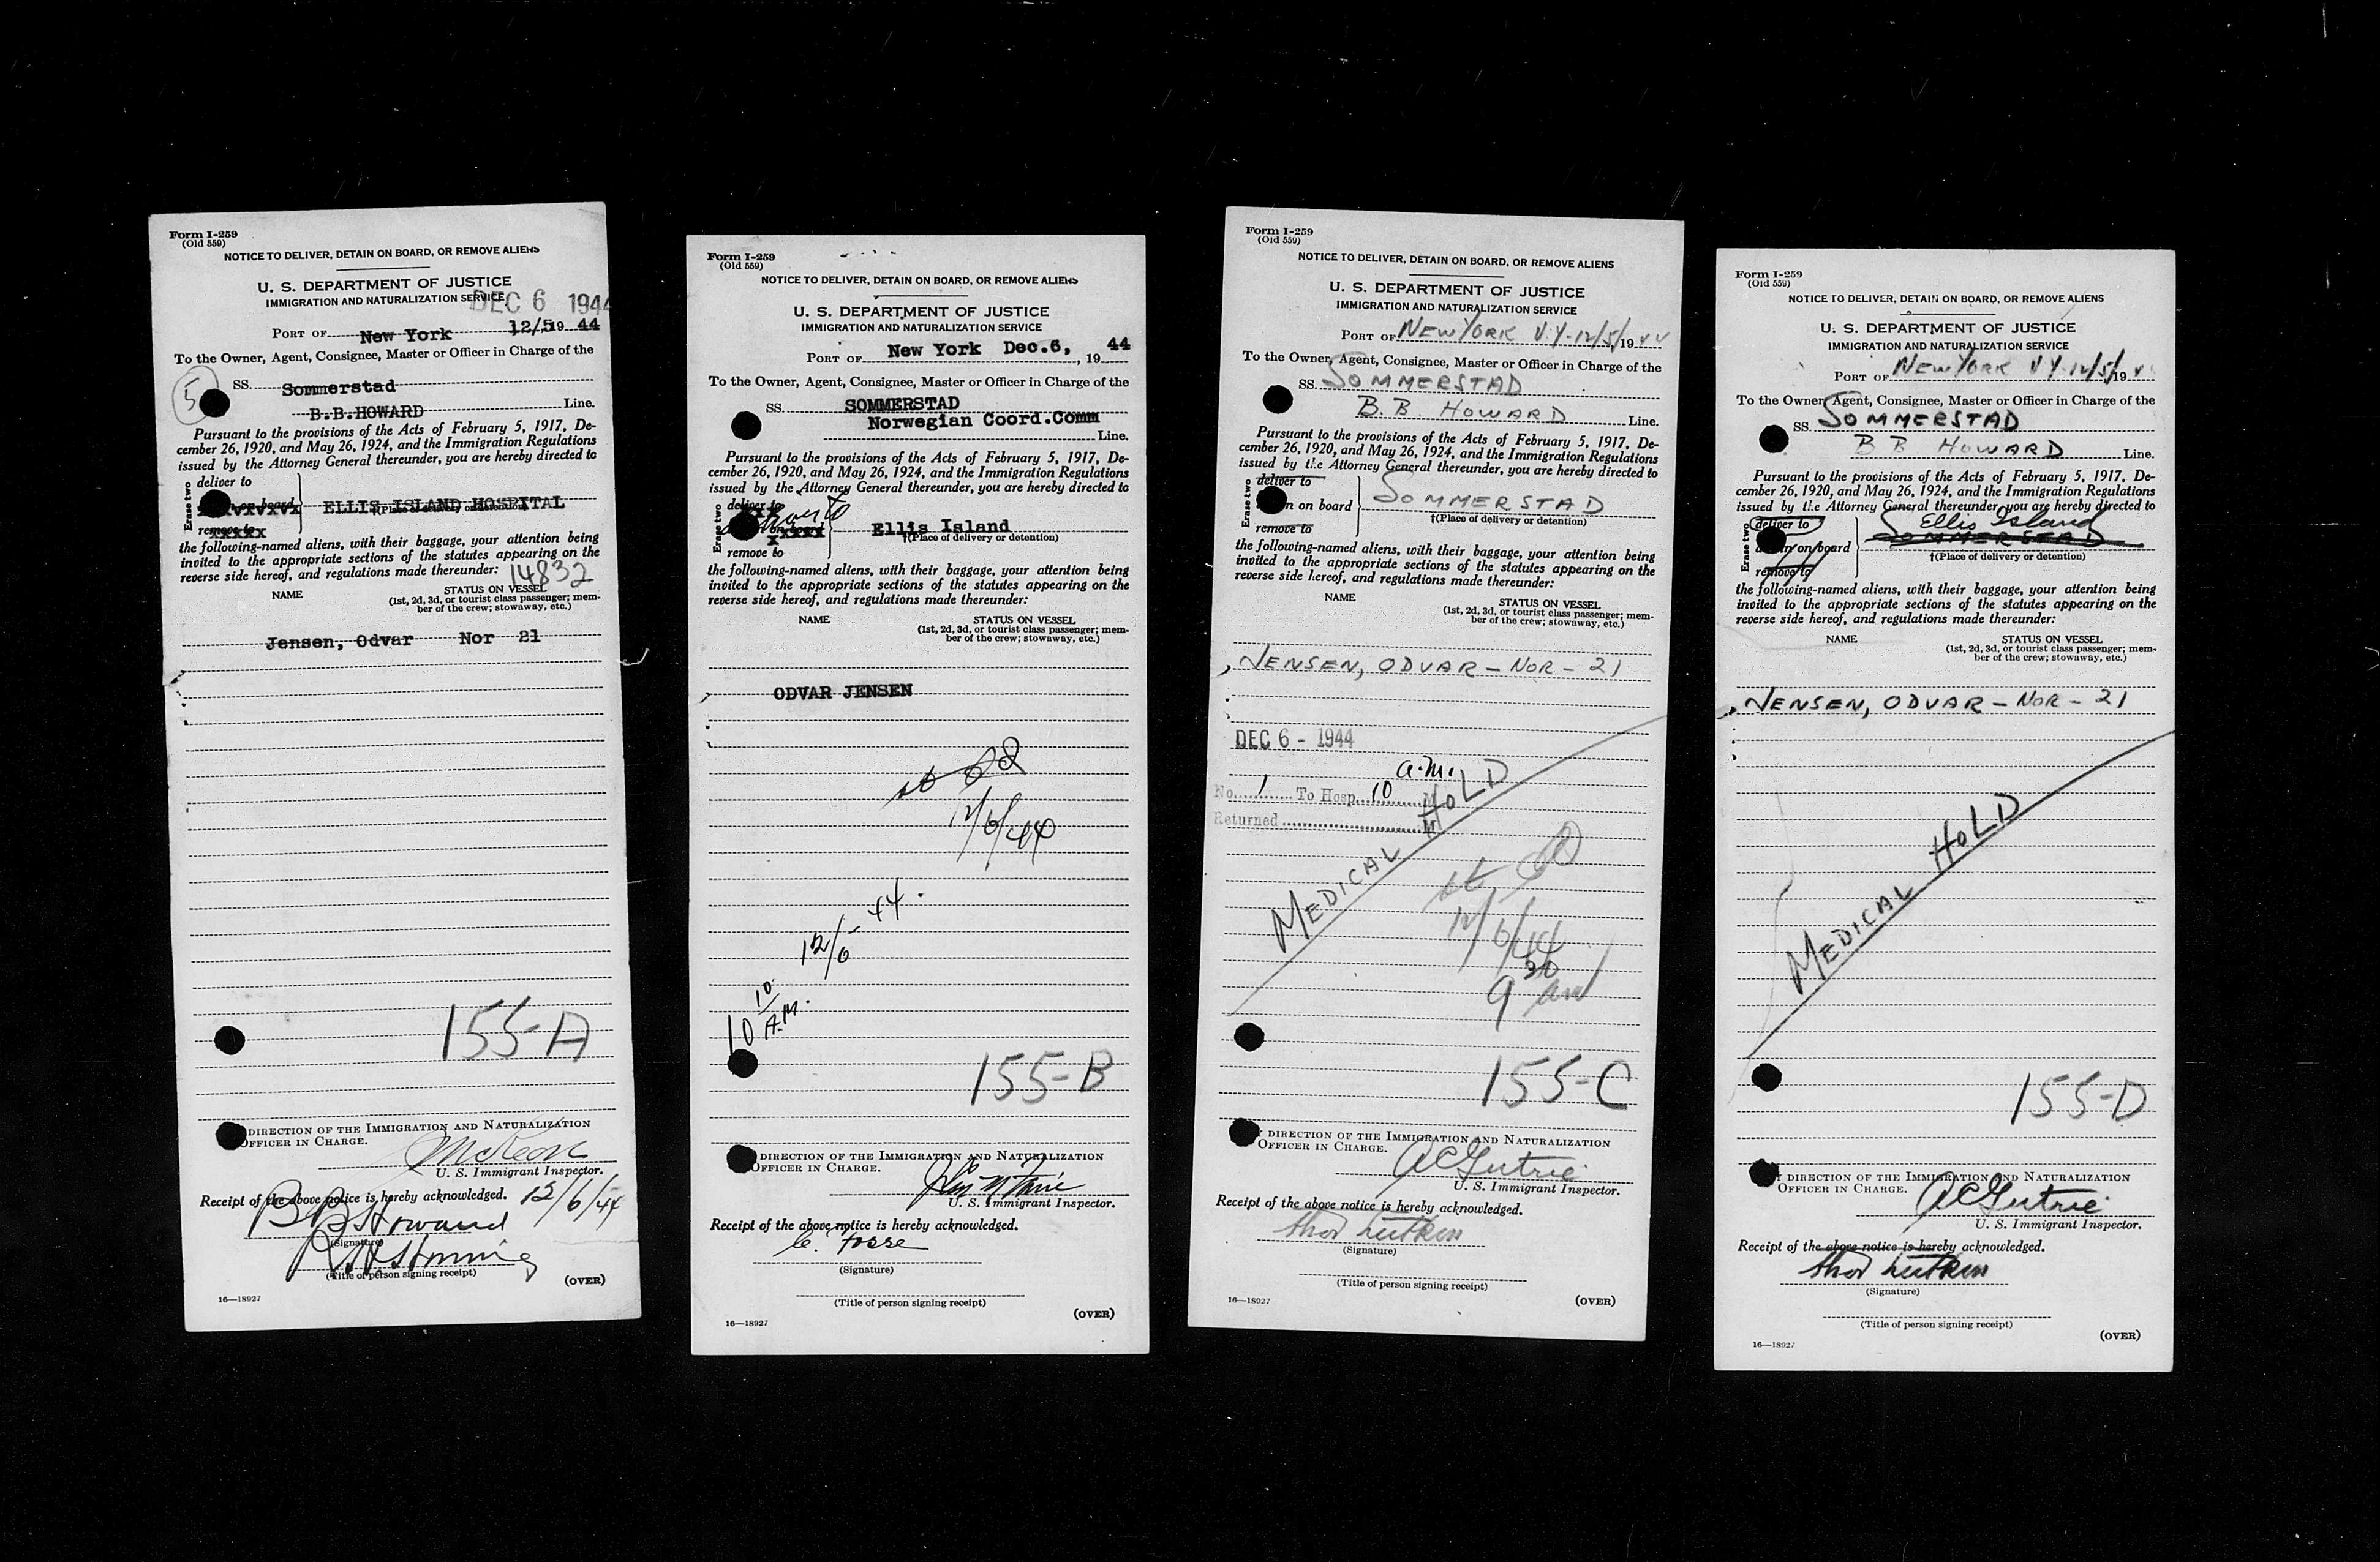 Form I-259
(Old 559)
NOTICE TO DELIVER, DETAIN ON BOARD, OR REMOVE ALIENS
U. S. DEPARTMENT OF JUSTICE
IMMIGRATION AND NATURALIZATION SERVICE
DEC 6 1944
PORT OF New York 12/5 19 44
To the Owner, Agent, Consignee, Master or Officer in Charge of the
5 SS. Sommerstad
B.B.HOWARD Line.
Pursuant to the provisions of the Acts of February 5, 1917, De-
cember 26, 1920, and May 26, 1924, and the Immigration Regulations
issued by the Attorney General thereunder, you are hereby directed to
Erase two
deliver to
on board ELLIS ISLAND HOSPITAL
†(Place of delivery or detention)
remove to
the following-named aliens, with their baggage, your attention being
invited to the appropriate sections of the statutes appearing on the
reverse side hereof, and regulations made thereunder: 14832
NAME STATUS ON VESSEL
(1st, 2d, 3d, or tourist class passenger; mem-
ber of the crew; stowaway, etc.)
Jensen, Odvar Nor 21
155-A
DIRECTION OF THE IMMIGRATION AND NATURALIZATION
OFFICER IN CHARGE.
U. S. Immigrant Inspector.
Receipt of the above notice is hereby acknowledged. 12/6/44
B B Howard
(Signature)
(Title of person signing receipt)
(OVER)
16—18927
Form I-259
(Old 559)
NOTICE TO DELIVER, DETAIN ON BOARD, OR REMOVE ALIENS
U. S. DEPARTMENT OF JUSTICE
IMMIGRATION AND NATURALIZATION SERVICE
PORT OF New York Dec.6, 19 44
To the Owner, Agent, Consignee, Master or Officer in Charge of the
SS. SOMMERSTAD
Norwegian Coord.Comm
Line.
Pursuant to the provisions of the Acts of February 5, 1917, De-
cember 26, 1920, and May 26, 1924, and the Immigration Regulations
issued by the Attorney General thereunder, you are hereby directed to
Erase two
deliver to
on board Ellis Island
†(Place of delivery or detention)
remove to
the following-named aliens, with their baggage, your attention being
invited to the appropriate sections of the statutes appearing on the
reverse side hereof, and regulations made thereunder:
NAME STATUS ON VESSEL
(1st, 2d, 3d, or tourist class passenger; mem-
ber of the crew; stowaway, etc.)
ODVAR JENSEN
12/6/44
12/6-44.
10 10 A.M.
155-B
DIRECTION OF THE IMMIGRATION AND NATURALIZATION
OFFICER IN CHARGE.
U. S. Immigrant Inspector.
Receipt of the above notice is hereby acknowledged.
Fosse
(Signature)
(Title of person signing receipt)
(OVER)
16—18927
Form I-259
(Old 559)
NOTICE TO DELIVER, DETAIN ON BOARD, OR REMOVE ALIENS
U. S. DEPARTMENT OF JUSTICE
IMMIGRATION AND NATURALIZATION SERVICE
PORT OF NEW YORK N.Y. 12/5/ 19 44
To the Owner, Agent, Consignee, Master or Officer in Charge of the
SS. SOMMERSTAD
B.B. HOWARD Line.
Pursuant to the provisions of the Acts of February 5, 1917, De-
cember 26, 1920, and May 26, 1924, and the Immigration Regulations
issued by the Attorney General thereunder, you are hereby directed to
Erase two
deliver to
n on board SOMMERSTAD
†(Place of delivery or detention)
remove to
the following-named aliens, with their baggage, your attention being
invited to the appropriate sections of the statutes appearing on the
reverse side hereof, and regulations made thereunder:
NAME STATUS ON VESSEL
(1st, 2d, 3d, or tourist class passenger; mem-
ber of the crew; stowaway, etc.)
JENSEN, ODVAR - NOR - 21
DEC 6 - 1944
No. 1 To Hosp. 10 a.m. M
Returned M
MEDICAL HOLD
12/6/44
9 30 am
155-C
DIRECTION OF THE IMMIGRATION AND NATURALIZATION
OFFICER IN CHARGE.
AC Gutrie
U. S. Immigrant Inspector.
Receipt of the above notice is hereby acknowledged.
Thor
(Signature)
(Title of person signing receipt)
(OVER)
16—18927
Form I-259
(Old 559)
NOTICE TO DELIVER, DETAIN ON BOARD, OR REMOVE ALIENS
U. S. DEPARTMENT OF JUSTICE
IMMIGRATION AND NATURALIZATION SERVICE
PORT OF NEW YORK N Y. 12/5/ 19 4
To the Owner, Agent, Consignee, Master or Officer in Charge of the
SS. SOMMERSTAD
B B HOWARD Line.
Pursuant to the provisions of the Acts of February 5, 1917, De-
cember 26, 1920, and May 26, 1924, and the Immigration Regulations
issued by the Attorney General thereunder, you are hereby directed to
Erase two
deliver to Ellis Island
on board SOMMERSTAD
†(Place of delivery or detention)
remove to
the following-named aliens, with their baggage, your attention being
invited to the appropriate sections of the statutes appearing on the
reverse side hereof, and regulations made thereunder:
NAME STATUS ON VESSEL
(1st, 2d, 3d, or tourist class passenger; mem-
ber of the crew; stowaway, etc.)
JENSEN, ODVAR - NOR - 21
MEDICAL HOLD
155-D
DIRECTION OF THE IMMIGRATION AND NATURALIZATION
OFFICER IN CHARGE.
AC Gutrie
U. S. Immigrant Inspector.
Receipt of the above notice is hereby acknowledged.
Thor
(Signature)
(Title of person signing receipt)
(OVER)
16—18927